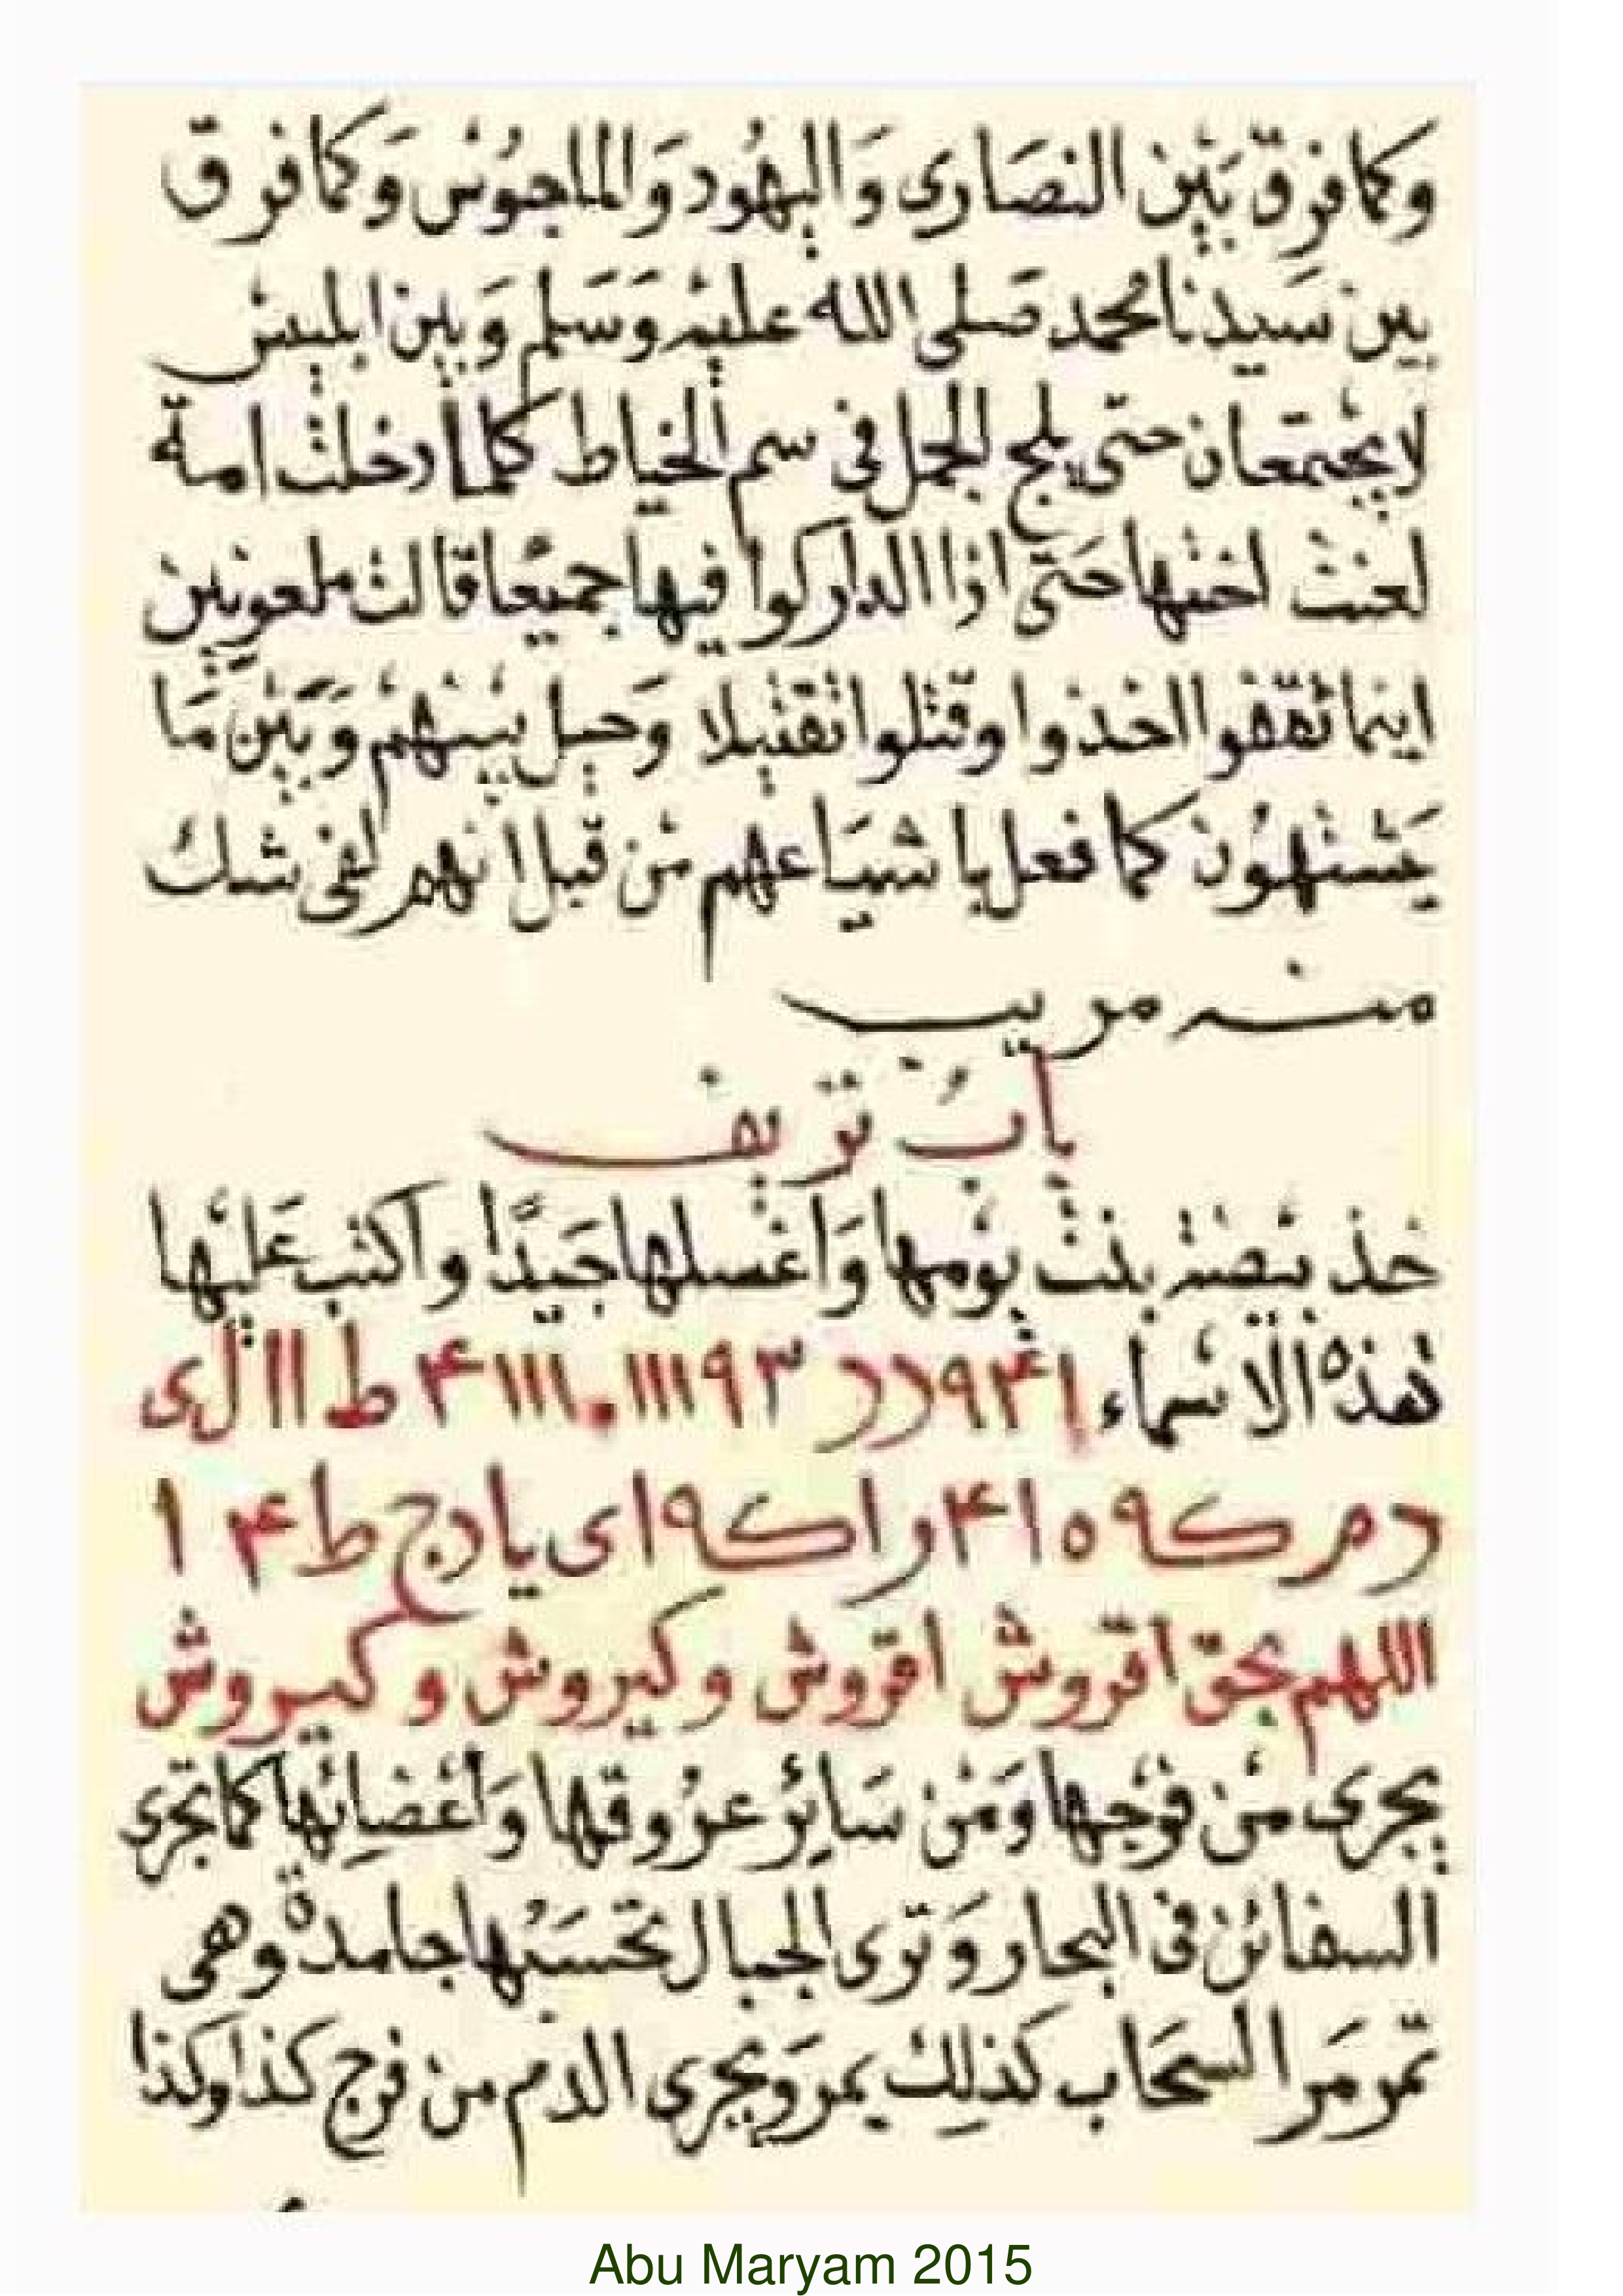 وكما فرق بَيْن النصَارى وَاليهُود وَالماجوُسْ وَكما فرق
بين سَيدنا محمد صَلى الله عليْه وَسَلم وَبين ابليسْ
لا يجْتمَعان حتّى يلج الجمل فى سم الخياط كلما دخلتْ امة
لعنتْ اختها حَتّى اذا اداركوا فيها جميْعًا قالتْ ملعونين
اينما ثقفوا اخذوا وقتلوا تقتيلا وَحيل بينْهمْ وَبَيْن مَا
يَشتهوُن كما فعل باشيَاعهم منْ قبل انهم لفى شك
منه مريب
بابُ نزيف
خذ بيْضة بنتْ يوْمها وَاغسلها جَيدًا واكتب عَليْها
هذه الاسْماء ١ ٤ ٣ ٩ د د ٣ ٩ ١١١ . ١١١١ ٤ ط ١١ ل ى
د م ك ٩ ٥ ١ ٤ ر ا ك ٩ ا ى يا د ج ط ٤ ١
اللهم بحق اقروش اقروش وكيروش وكيروش
يجرى منْ فرْجها وَمَنْ سَايِرْ عرُوقها وَاعْضايْها كما تجرى
السفائن فى البحار وَترى الجبال تحْسَبُها جامدةً وهى
تمر مَر السحَاب كذلِك يمر وَيجرى الدم من فرج كذا وكذا
Abu Maryam 2015